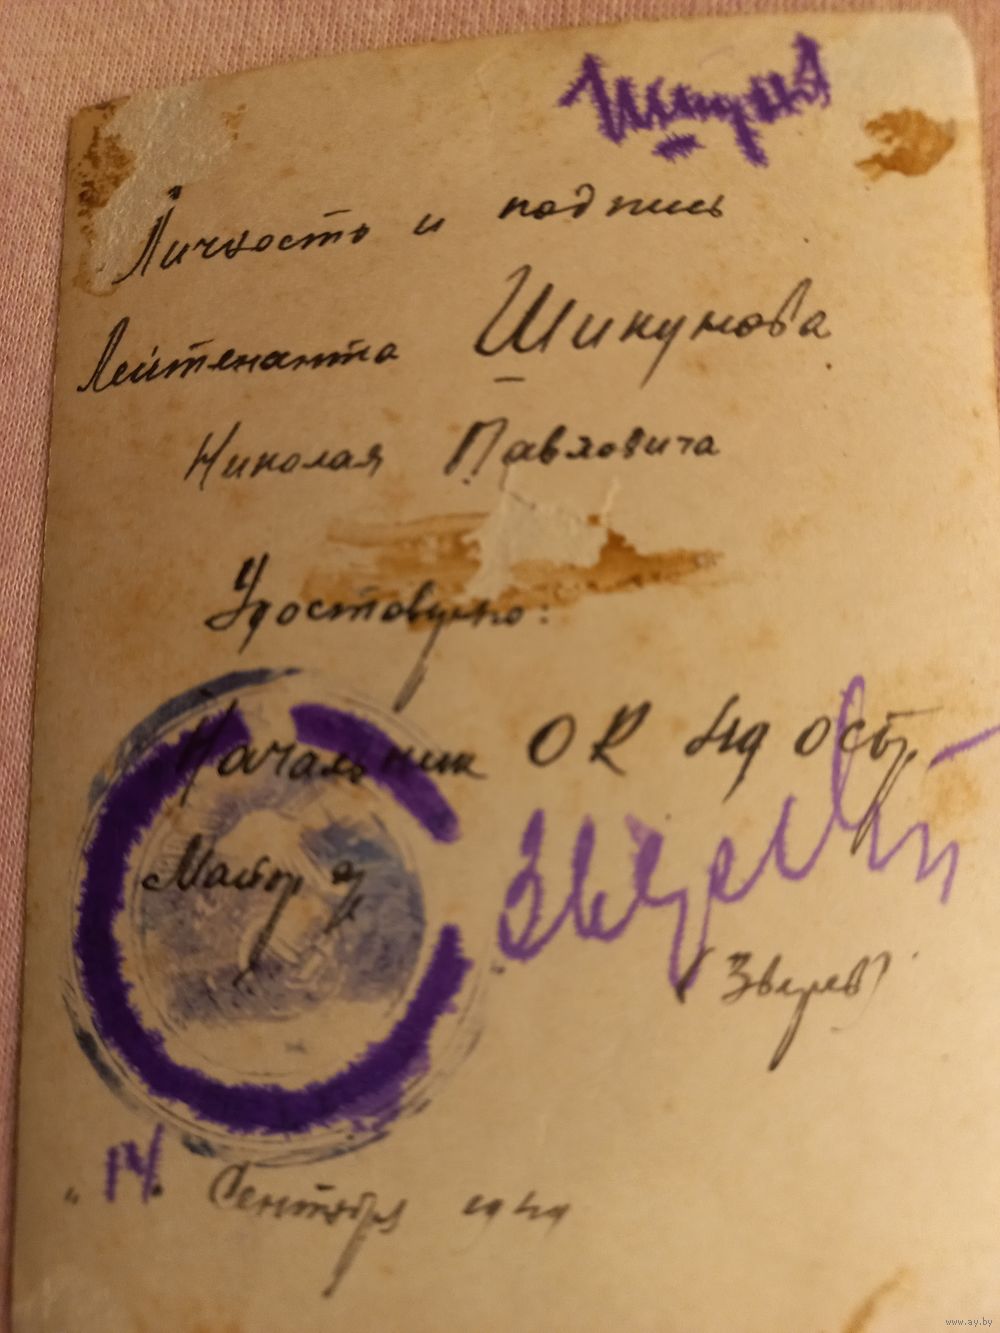 Личность и подпись
Лейтенанта Шикунова
Николая Павловича
Удостоверяю:
Начальник ОК
Майор
Зверев
(Зверев)
"14" Сентября 1949
www.ay.by